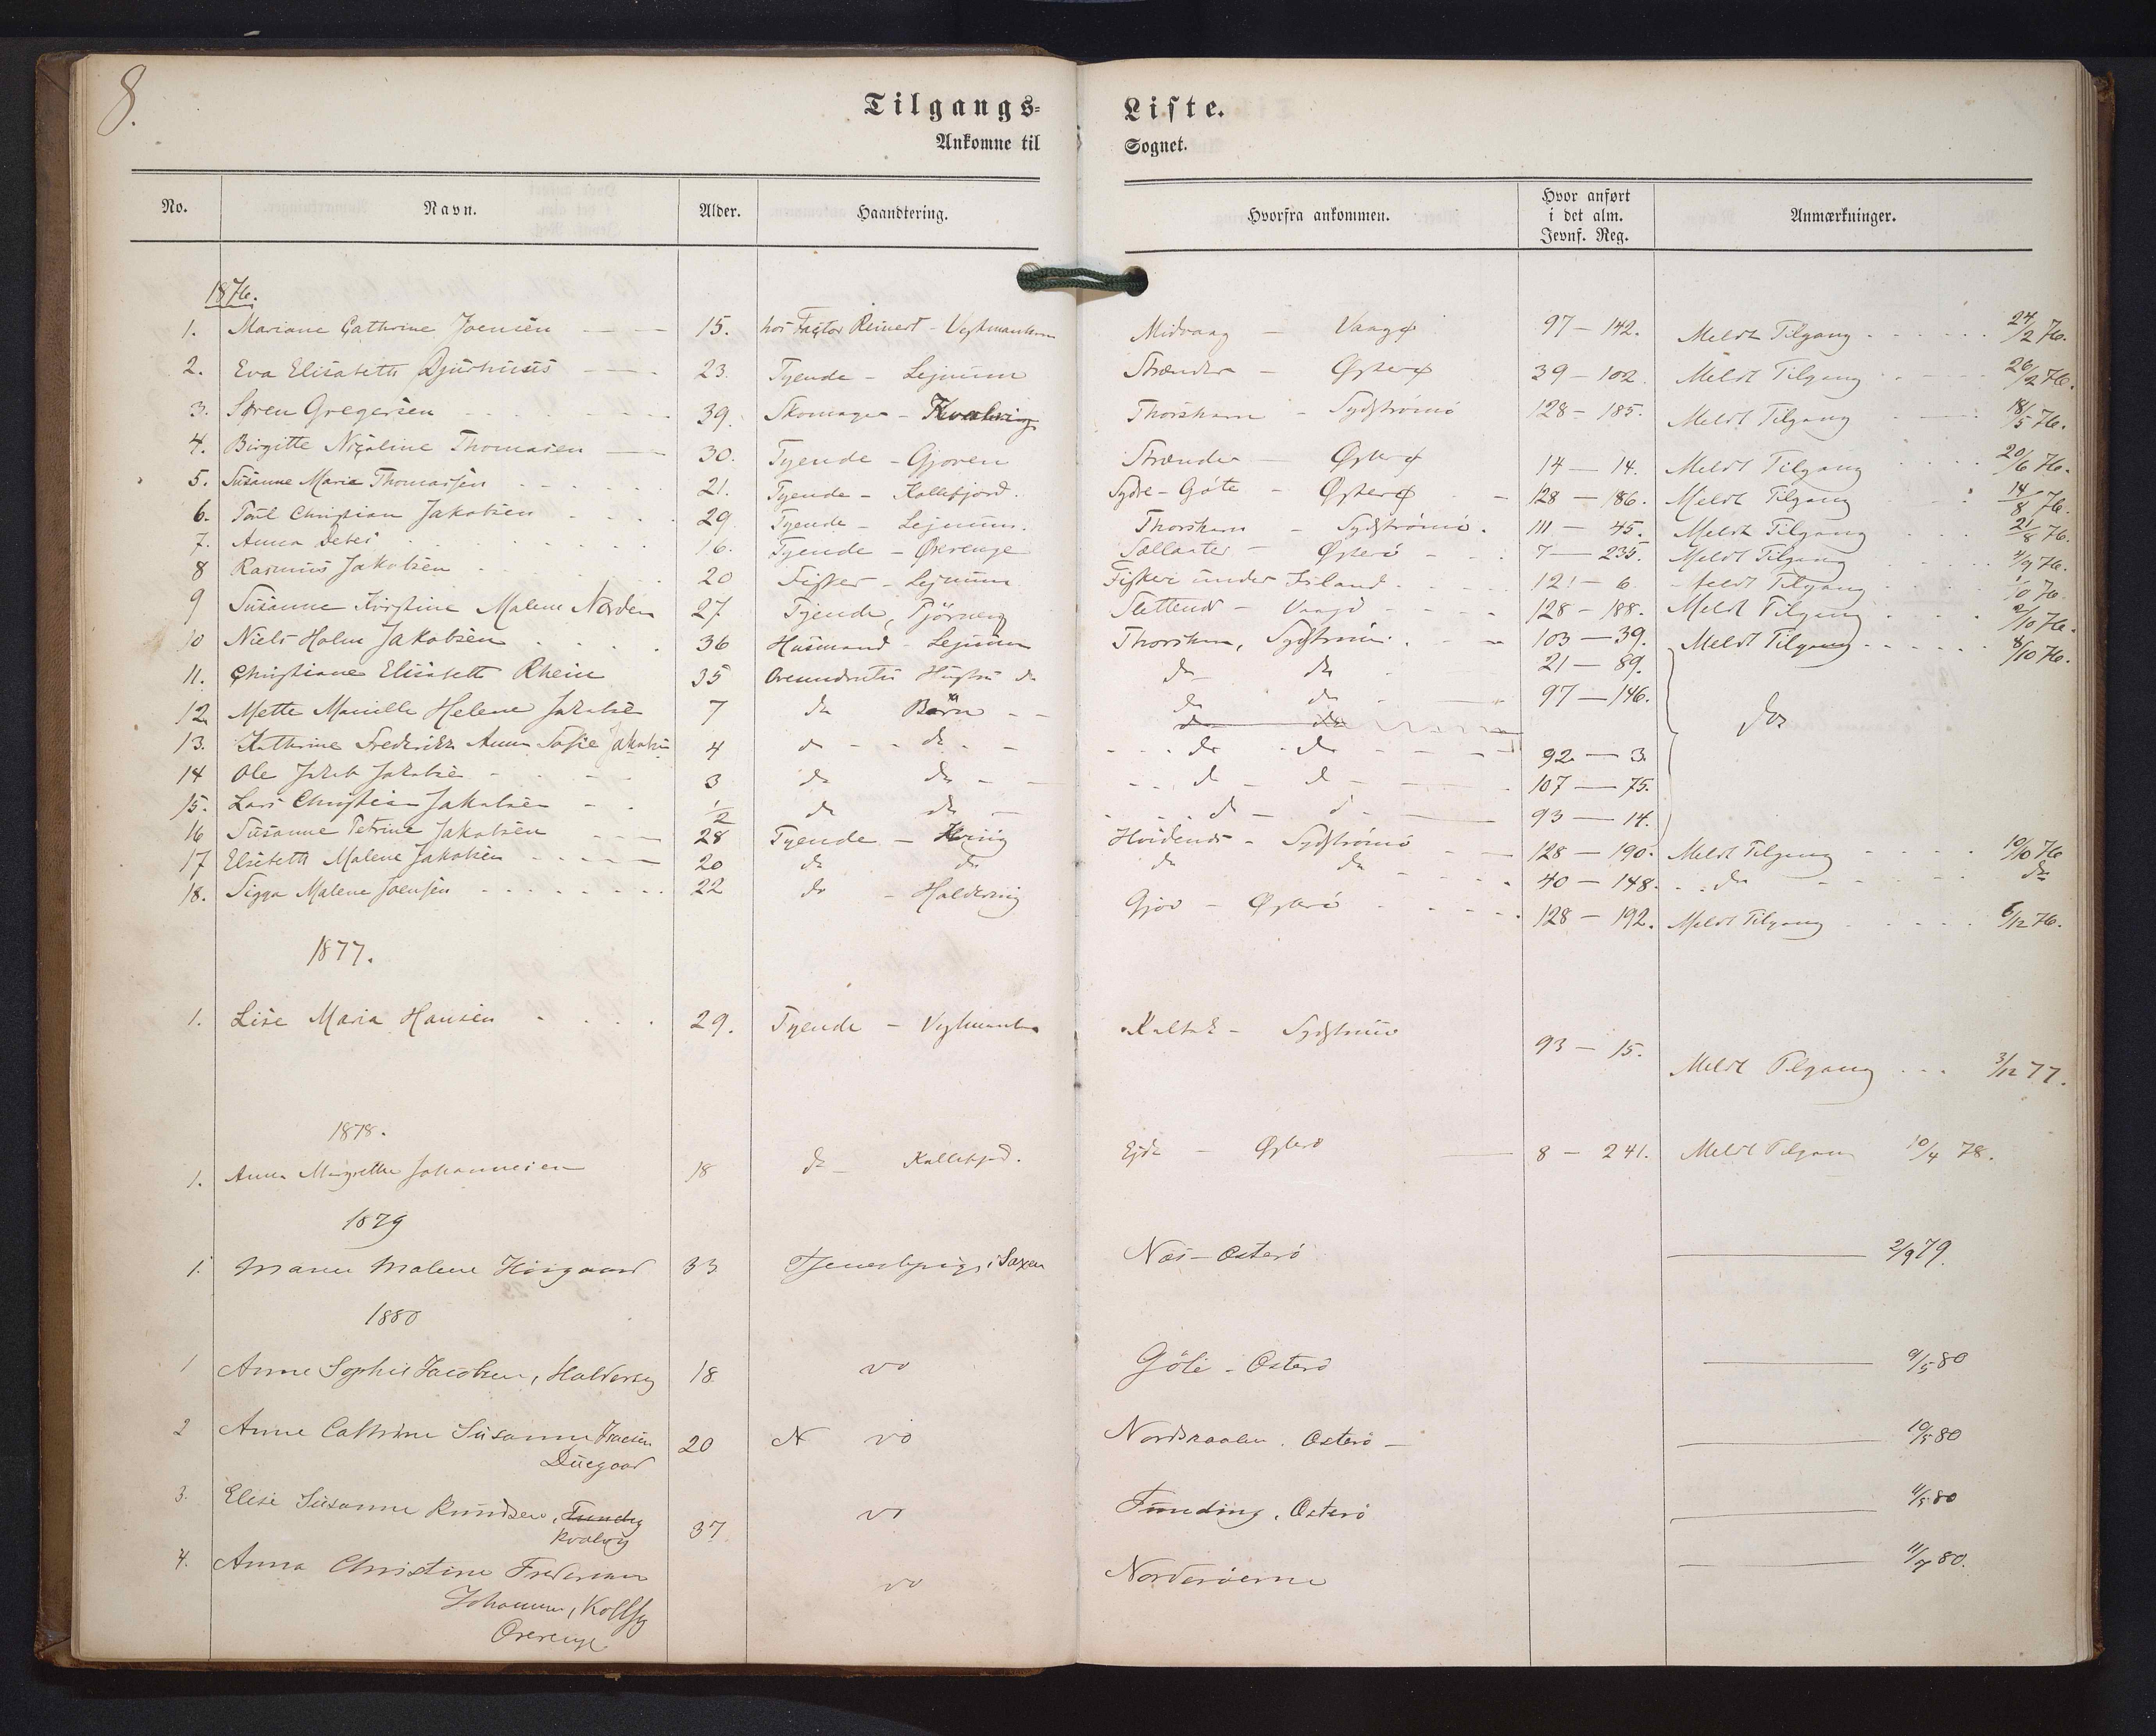 8.
Tilgangs= Liste.
Ankomne til Sognet.
No. Navn. Alder. Haandtering. Hvorfra ankommen. Hvor anført i det alm. Jevnf. Reg. Anmærkninger.
1876.
1. Mariane Cathrine Joensen 15. hos Factor Reinert - Vestmanhavn Midvaag - Vaagø 97 - 142. Meldt Tilgang 24/2 76.
2. Eva Elisabeth Djurhuus 23. Tyende - Lejnum Strænder - Østerø 39 - 102. Meldt Tilgang 26/2 76.
3. Søren Gregersen 39. Skomager - Kvalvig Thorshavn - Sydströmö 128 - 185. Meldt Tilgang 18/5 76.
4. Birgitte Nicoline Thomasen 30. Tyende - Gjoven Strænder - Østerø 14 - 14. Meldt Tilgang 20/6 76.
5. Susanne Marie Thomassen 21. Tyende - Kollefjord. Sydre-Göte - Østerø 128 - 186. Meldt Tilgang 14/8 76.
6. Poul Christian Jakobsen 29 Tyende - Lejnum. Thorshavn - Sydströmö. 111 - 45. Meldt Tilgang 21/8 76.
7. Anna Debes 16. Tyende - Ørerenge Sællatter - Østerö 7 - 235. Meldt Tilgang 4/9 76.
8 Rasmus Jakobsen 20 Fisker - Lejnum Fiskeri under Island 121 - 6 Meldt Tilgang 1/10 76
9 Susanne Kirstine Malene Norden 27 Tyende, Tjörnevig Slettenæs - Vaagö 128 - 188. Meldt Tilgang 2/10 76.
10 Niels Holm Jakobsen 36 Husmand - Lejnum Thorshavn, Sydströmö 103 - 39. Meldt Tilgang 8/10 76.
11. Christiane Elisabeth Rhein 35 Ovennævntes Hustru do do do 21 - 89.
12. Mette Marielle Helene Jakobsen 7 do Børn do do 97 - 146. do
13. Kathrine Frederikke Anna Sofie Jakobsen 4 do do do do 92 - 3.
14 Ole Jakob Jakobsen 3 do do do do 107 - 75.
15. Lars Christian Jakobsen 1/2 do do do do 93 - 14.
16 Susanne Petrine Jakobsen 28 Tyende - Hvidenæs - Sydströmö 128 - 190. Meldt Tilgang 10/10 76
17 Elsebeth Malene Jakobsen 20 do do do do 40 - 148. do do
18. Sigga Malene Joensen 22 do - Haldersvig Gjov - Österö 128 - 192. Meldt Tilgang 6/12 76.
1877.
1. Lise Maria Hansen 29. Tyende - Vestmanhavn Kaltbak - Sydströmö 93 - 15. Meldt Tilgang 3/12 77.
1878.
1. Anna Margrethe Johannesen 18 do - Kollefjord. Ejde - Østerö 8 - 241. Meldt Tilgang 10/4 78.
1879
1. Maren Malene Höigaard 33 Tjenestepige i Saxen Næs - Österö 2/9 79.
1880
1 Anne Sophie Jacobsen, Haldersvig 18 do Göte - Österö 9/5 80
2 Anne Cathrine Susanne Joensen
Duegaard 20 N do Nordskaalen. Österö - 10/5 80
3. Elise Susanne Knudsen, Funding
Kvalvig 37 do Funding, Österö 11/5 80
4. Anna Christine Frederikke
Johannesen, Kollfj
Ørerenge do Norderöerne 11/7 80.